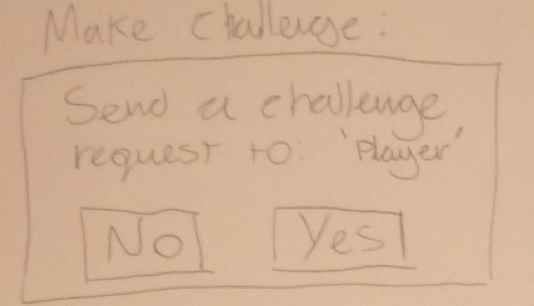 Make Challenge:
Send a challenge
request to: 'Player'
No Yes